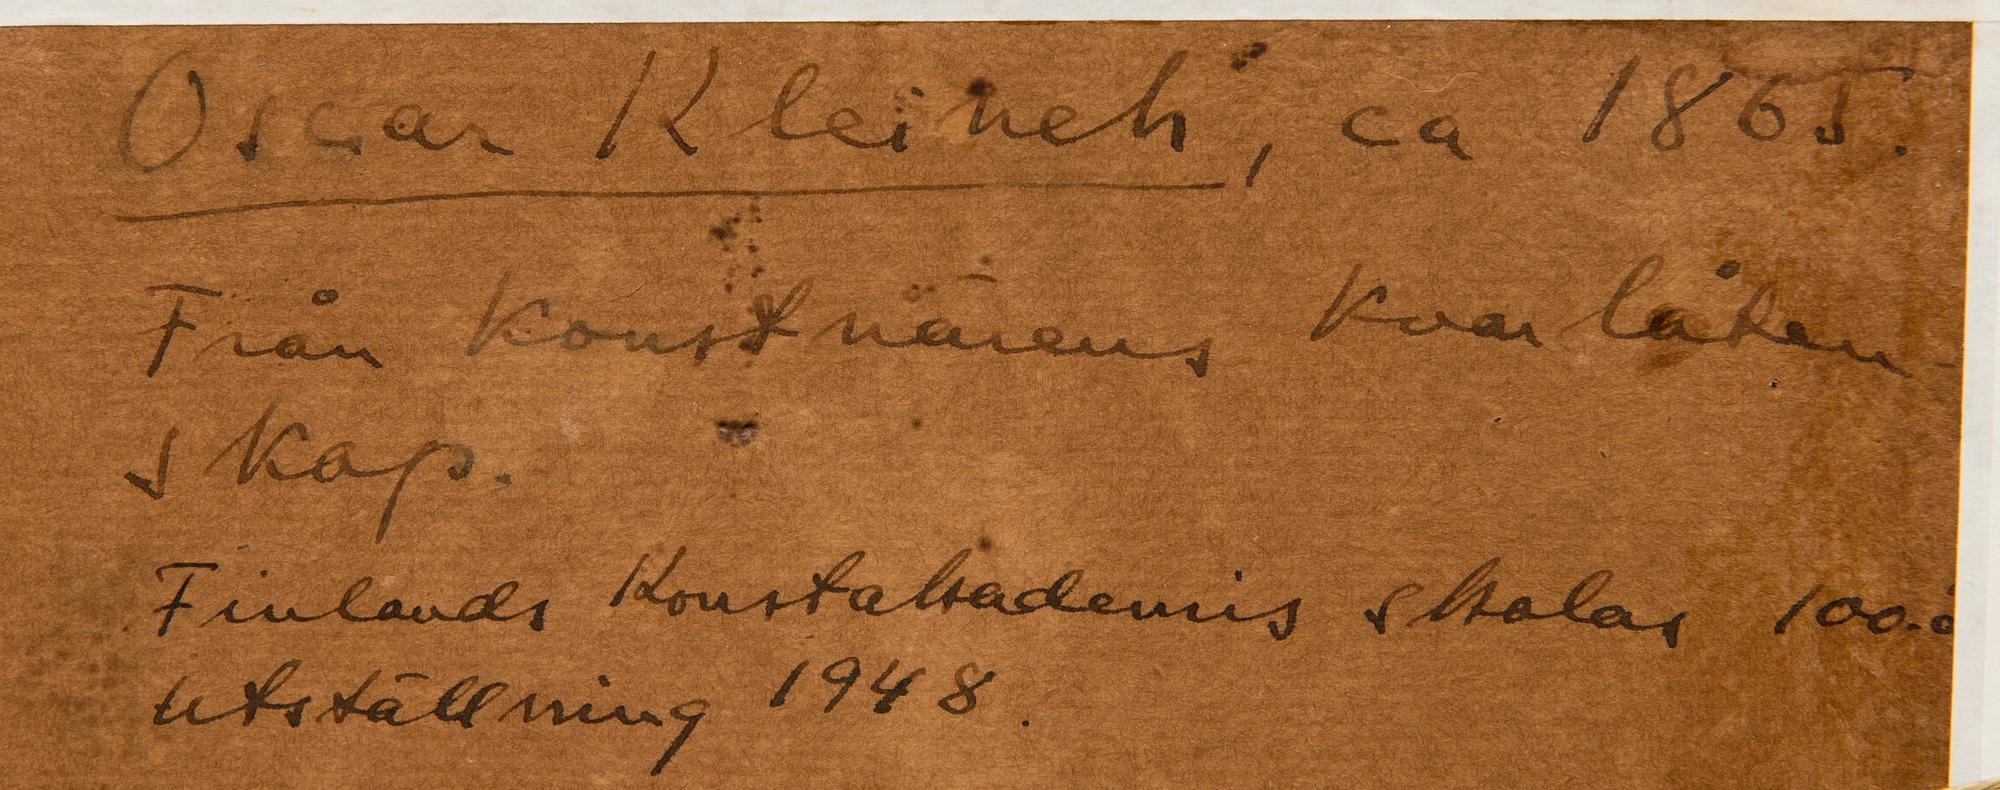 Oscar Kleineh, ca 1865.
Från konstnärens kvarlåten-
skap.
Finlands Konstakademis skolas 100-å
utställning 1948.